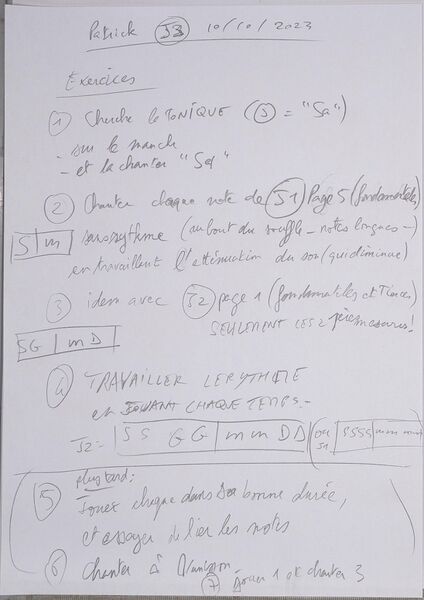 Patrick S3 10/10/2023
Exercices
1 Cherche la TONIQUE (S = "Sa")
- sur le manche
- et la chanter "Sa"
2 Chanter chaque note de S1 Page 5 (fondamentales)
S | m sans rythme (au bout du souffle - notes longues -)
en travaillant l'atténuation du son (qui diminue)
3 idem avec S2 page 1 (fondamentales et Tierces)
SEULEMENT LES 2 1ères mesures!
SG | m D
4 TRAVAILLER LE RYTHME
en JOUANT CHAQUE TEMPS -
S2 = SS GG | mm DD (ou S1 SSSS mm mm)
plus tard:
5 Jouez chaque dans sa bonne durée,
et essayer de lier les notes
6 Chanter à l'unisson -
7 Jouer 1 et chanter 3